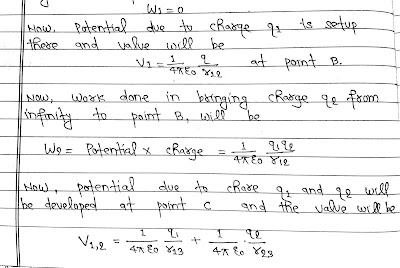 W1 = 0
Now, Potential due to charge q1 is setup
there and value will be
V1 = 1/4πε0 q/r12 at point B.
Now, work done in bringing charge q2 from
infinity to point B, will be
W2 = Potential × charge = 1/4πε0 q1q2/r12
Now, potential due to chare q1 and q2 will
be developed at point C and the value will be
V1,2 = 1/4πε0 q1/r13 + 1/4πε0 q2/r23